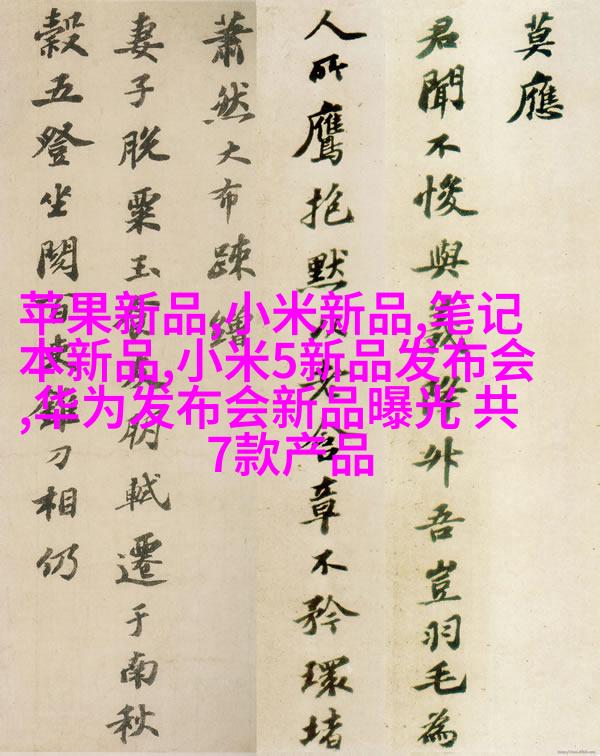 莫應
君聞不悛與義降外吾豈羽毛為
人所鷹抱默以老含章不矜環堵
蕭然大布疎繒
妻子脫粟玉食友朋軾遷于南秋
穀五登坐閱百吏錐刀相仍
苹果新品,小米新品,笔记
本新品,小米5新品发布会
,华为发布会新品曝光 共
7款产品